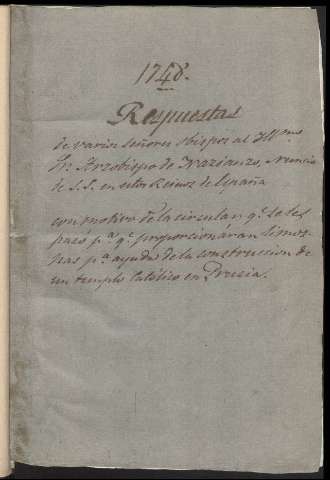 1748.
Respuestas
de varios señores obispos al Illmo.
Sr. Arzobispo de Nazianzo, Nuncio
de S.S. en estos Reinos de España
con motivo de la circular q.e se les
pasó p.a q.e proporcionáran limos-
nas p.a ayuda de la construccion de
un templo Católico en Prusia.